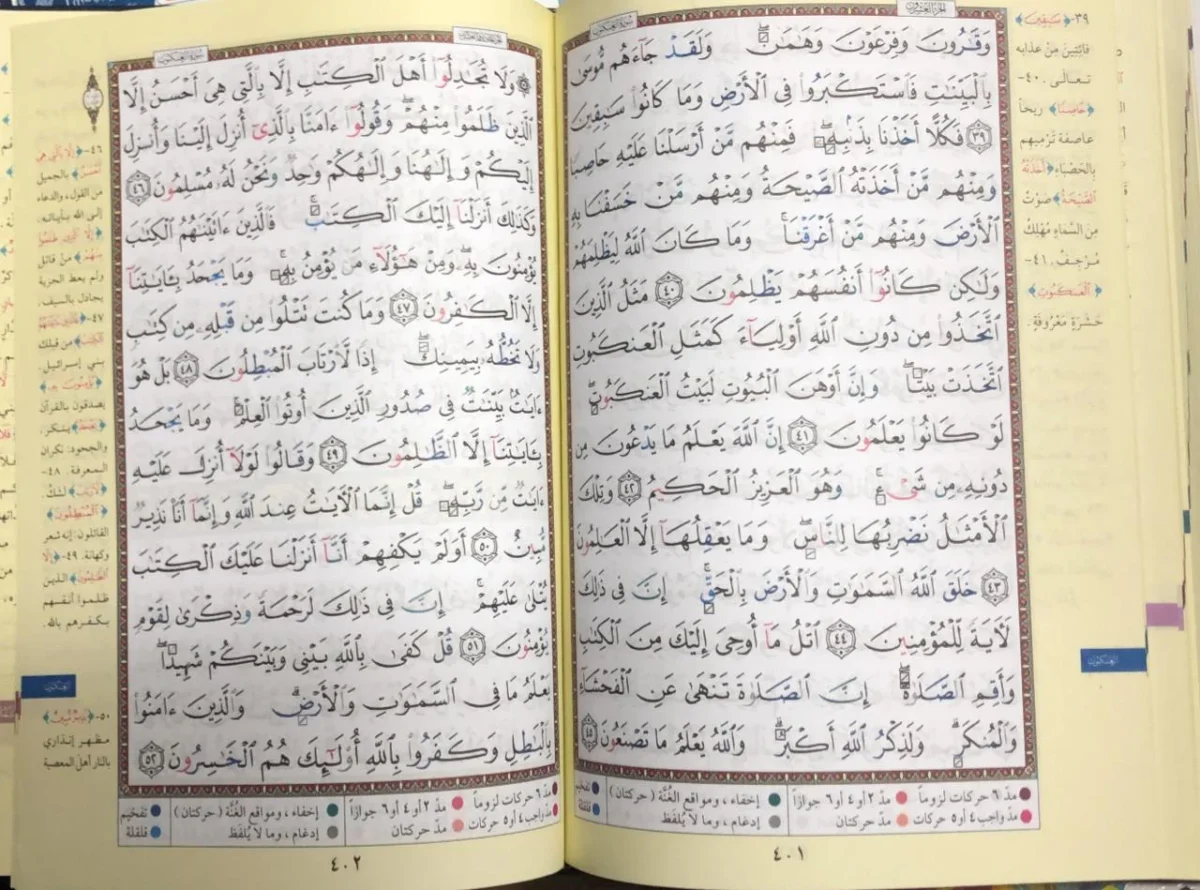 الجزء العشرون
سورة العنكبوت
وَقَٰرُونَ وَفِرْعَوْنَ وَهَٰمَٰنَ ۖ وَلَقَدْ جَآءَهُم مُّوسَىٰ
بِٱلْبَيِّنَٰتِ فَٱسْتَكْبَرُوا۟ فِى ٱلْأَرْضِ وَمَا كَانُوا۟ سَٰبِقِينَ
﴿٣٩﴾ فَكُلًّا أَخَذْنَا بِذَنۢبِهِۦ ۖ فَمِنْهُم مَّنْ أَرْسَلْنَا عَلَيْهِ حَاصِبًا
وَمِنْهُم مَّنْ أَخَذَتْهُ ٱلصَّيْحَةُ وَمِنْهُم مَّنْ خَسَفْنَا بِهِ
ٱلْأَرْضَ وَمِنْهُم مَّنْ أَغْرَقْنَا ۚ وَمَا كَانَ ٱللَّهُ لِيَظْلِمَهُمْ
وَلَٰكِن كَانُوٓا۟ أَنفُسَهُمْ يَظْلِمُونَ ﴿٤٠﴾ مَثَلُ ٱلَّذِينَ
ٱتَّخَذُوا۟ مِن دُونِ ٱللَّهِ أَوْلِيَآءَ كَمَثَلِ ٱلْعَنكَبُوتِ
ٱتَّخَذَتْ بَيْتًا ۖ وَإِنَّ أَوْهَنَ ٱلْبُيُوتِ لَبَيْتُ ٱلْعَنكَبُوتِ ۖ
لَوْ كَانُوا۟ يَعْلَمُونَ ﴿٤١﴾ إِنَّ ٱللَّهَ يَعْلَمُ مَا يَدْعُونَ مِن
دُونِهِۦ مِن شَىْءٍ ۚ وَهُوَ ٱلْعَزِيزُ ٱلْحَكِيمُ ﴿٤٢﴾ وَتِلْكَ
ٱلْأَمْثَٰلُ نَضْرِبُهَا لِلنَّاسِ ۖ وَمَا يَعْقِلُهَآ إِلَّا ٱلْعَٰلِمُونَ
﴿٤٣﴾ خَلَقَ ٱللَّهُ ٱلسَّمَٰوَٰتِ وَٱلْأَرْضَ بِٱلْحَقِّ ۚ إِنَّ فِى ذَٰلِكَ
لَءَايَةً لِّلْمُؤْمِنِينَ ﴿٤٤﴾ ٱتْلُ مَآ أُوحِىَ إِلَيْكَ مِنَ ٱلْكِتَٰبِ
وَأَقِمِ ٱلصَّلَوٰةَ ۖ إِنَّ ٱلصَّلَوٰةَ تَنْهَىٰ عَنِ ٱلْفَحْشَآءِ
وَٱلْمُنكَرِ ۗ وَلَذِكْرُ ٱللَّهِ أَكْبَرُ ۗ وَٱللَّهُ يَعْلَمُ مَا تَصْنَعُونَ ﴿٤٥﴾
٣٩- ﴿سَٰبِقِينَ﴾
فائتينَ مِنْ عذابه
تعالى. ٤٠-
﴿حَاصِبًا﴾ ريحاً
عاصفة تَرْميهم
بالحَصْباءِ ﴿أَخَذَتْهُ
ٱلصَّيْحَةُ﴾ صَوْتٌ
مِنَ السَّماءِ مُهْلِكٌ
مُرْجِفٌ. ٤١-
﴿ٱلْعَنكَبُوتِ﴾
حَشَرَةٍ مَعْرُوفَةٍ.
العنكبوت
مدّ ٦ حركات لزوماً مدّ ٢ أو ٤ أو ٦ جوازاً إخفاء، ومواقع الغُنَّة (حركتان) تفخيم
مدّ واجب ٤ أو ٥ حركات مدّ حركتان إدغام، وما لا يُلفَظ قلقلة
٤٠١
سورة العنكبوت
وَلَا تُجَٰدِلُوٓا۟ أَهْلَ ٱلْكِتَٰبِ إِلَّا بِٱلَّتِى هِىَ أَحْسَنُ إِلَّا
ٱلَّذِينَ ظَلَمُوا۟ مِنْهُمْ ۖ وَقُولُوٓا۟ ءَامَنَّا بِٱلَّذِىٓ أُنزِلَ إِلَيْنَا وَأُنزِلَ
إِلَيْكُمْ وَإِلَٰهُنَا وَإِلَٰهُكُمْ وَٰحِدٌ وَنَحْنُ لَهُۥ مُسْلِمُونَ ﴿٤٦﴾
وَكَذَٰلِكَ أَنزَلْنَآ إِلَيْكَ ٱلْكِتَٰبَ ۚ فَٱلَّذِينَ ءَاتَيْنَٰهُمُ ٱلْكِتَٰبَ
يُؤْمِنُونَ بِهِۦ ۖ وَمِنْ هَٰٓؤُلَآءِ مَن يُؤْمِنُ بِهِۦ ۚ وَمَا يَجْحَدُ بِـَٔايَٰتِنَآ
إِلَّا ٱلْكَٰفِرُونَ ﴿٤٧﴾ وَمَا كُنتَ تَتْلُوا۟ مِن قَبْلِهِۦ مِن كِتَٰبٍ
وَلَا تَخُطُّهُۥ بِيَمِينِكَ ۖ إِذًا لَّٱرْتَابَ ٱلْمُبْطِلُونَ ﴿٤٨﴾ بَلْ هُوَ
ءَايَٰتٌۢ بَيِّنَٰتٌ فِى صُدُورِ ٱلَّذِينَ أُوتُوا۟ ٱلْعِلْمَ ۚ وَمَا يَجْحَدُ
بِـَٔايَٰتِنَآ إِلَّا ٱلظَّٰلِمُونَ ﴿٤٩﴾ وَقَالُوا۟ لَوْلَآ أُنزِلَ عَلَيْهِ
ءَايَٰتٌ مِّن رَّبِّهِۦ ۖ قُلْ إِنَّمَا ٱلْءَايَٰتُ عِندَ ٱللَّهِ وَإِنَّمَآ أَنَا۠ نَذِيرٌ
مُّبِينٌ ﴿٥٠﴾ أَوَلَمْ يَكْفِهِمْ أَنَّآ أَنزَلْنَا عَلَيْكَ ٱلْكِتَٰبَ
يُتْلَىٰ عَلَيْهِمْ ۚ إِنَّ فِى ذَٰلِكَ لَرَحْمَةً وَذِكْرَىٰ لِقَوْمٍ
يُؤْمِنُونَ ﴿٥١﴾ قُلْ كَفَىٰ بِٱللَّهِ بَيْنِى وَبَيْنَكُمْ شَهِيدًا ۖ
يَعْلَمُ مَا فِى ٱلسَّمَٰوَٰتِ وَٱلْأَرْضِ ۗ وَٱلَّذِينَ ءَامَنُوا۟
بِٱلْبَٰطِلِ وَكَفَرُوا۟ بِٱللَّهِ أُو۟لَٰٓئِكَ هُمُ ٱلْخَٰسِرُونَ ﴿٥٢﴾
٤٦- ﴿إِلَّا بِٱلَّتِى هِىَ
أَحْسَنُ﴾ بالجميل
من القول، والدعاء
إلى الله بآياته.
﴿إِلَّا ٱلَّذِينَ ظَلَمُوا۟
مِنْهُمْ﴾ من قاتل
ولم يعط الجزية
يجادل بالسيف.
من قبلك
بني إسرائيل.
يصدقون بالقرآن
ينكر،
والجحود: نكران
المعرفة. ٤٨-
لشكّ.
﴿ٱلْمُبْطِلُونَ﴾
القائلون: إنه سحر
وكهانة. ٤٩- ﴿إِلَّا
ٱلظَّٰلِمُونَ﴾ الذين
ظلموا أنفسهم
بكفرهم بالله.
العنكبوت
٥٠- ﴿نَذِيرٌ مُّبِينٌ﴾
مظهر إنذاري
بالنار أهل المعصية
مدّ ٦ حركات لزوماً مدّ ٢ أو ٤ أو ٦ جوازاً إخفاء، ومواقع الغُنَّة (حركتان) تفخيم
مدّ واجب ٤ أو ٥ حركات مدّ حركتان إدغام، وما لا يُلفَظ قلقلة
٤٠٢